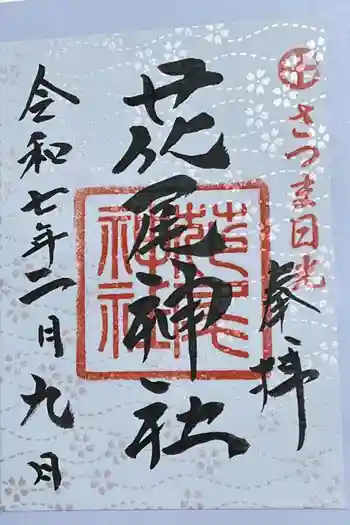 さつま日光
奉拝
花尾神社
花尾神社
令和七年二月九日